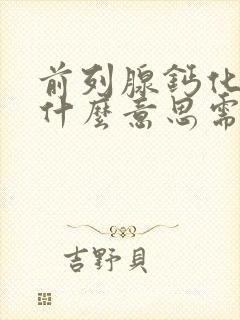 前列腺鈣化
什麼意思需
吉野貝